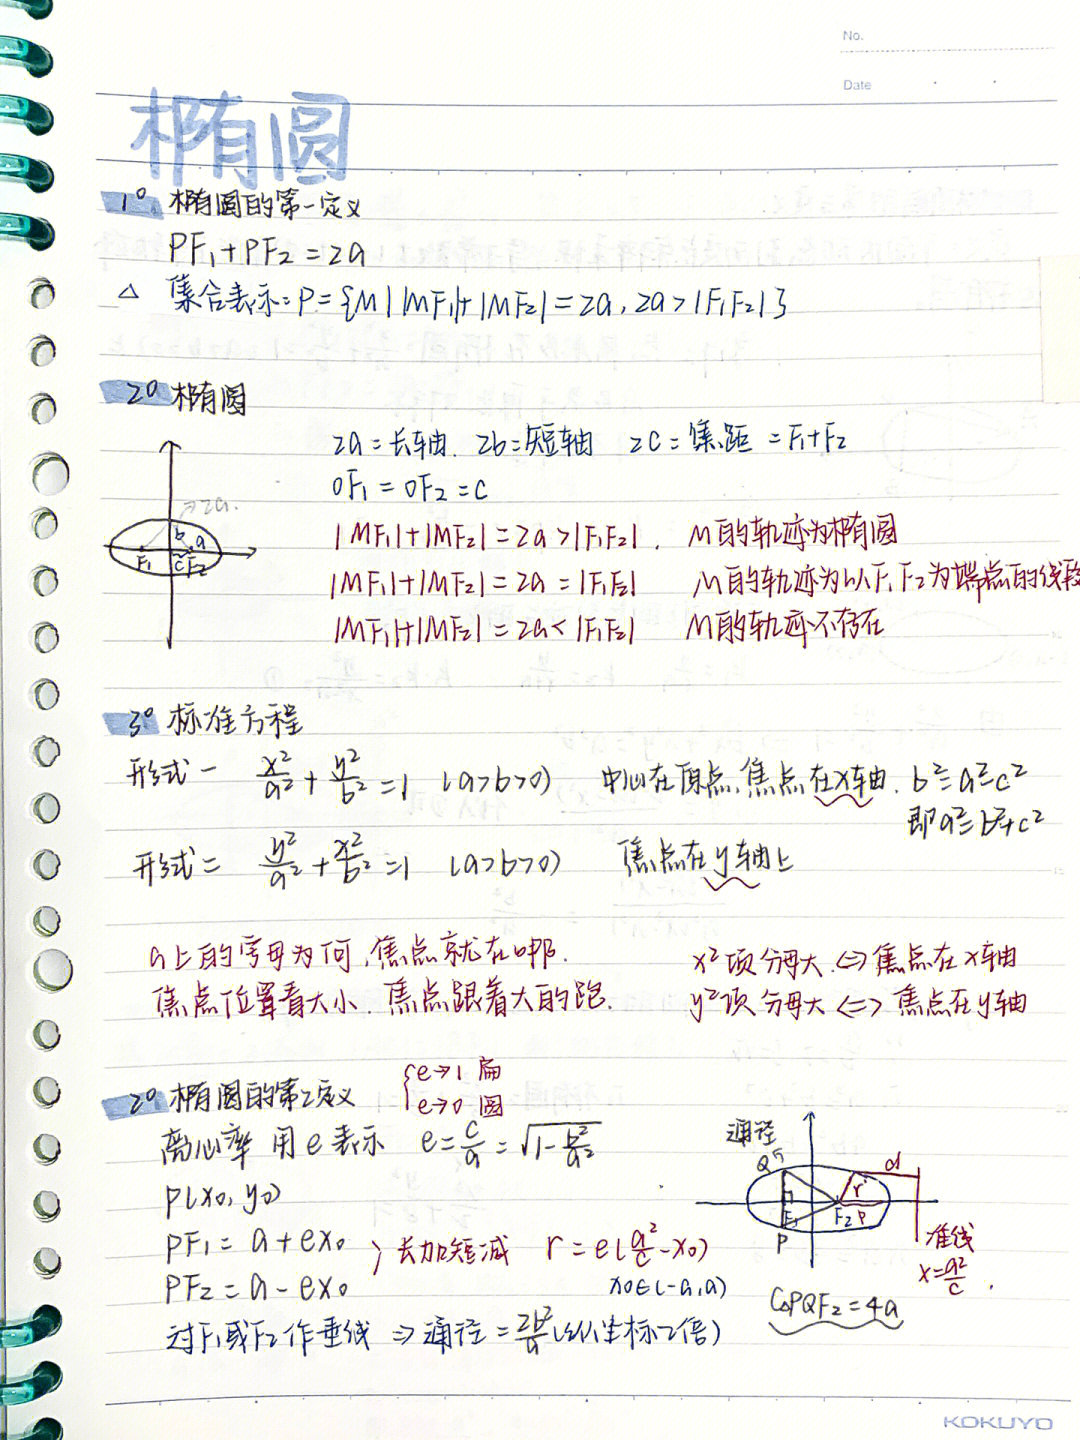 No.
Date
椭圆
1° 椭圆的第一定义
PF₁+PF₂=2a
△ 集合表示:P={M||MF₁|+|MF₂|=2a,2a>|F₁F₂|}
2° 椭圆
2a=长轴. 2b=短轴 2c=焦距=F₁+F₂
OF₁=OF₂=c
|MF₁|+|MF₂|=2a>|F₁F₂|. M的轨迹为椭圆
|MF₁|+|MF₂|=2a=|F₁F₂| M的轨迹为以F₁F₂为端点的线段
|MF₁|+|MF₂|=2a<|F₁F₂| M的轨迹不存在
→2a.
b a
F₁ c F₂
3° 标准方程
形式一 x²/a²+y²/b²=1 (a>b>0) 中心在原点,焦点在x轴. b²=a²-c²
即a²=b²+c²
形式二 y²/a²+x²/b²=1 (a>b>0) 焦点在y轴上
a上的字母为何,焦点就在哪. x²项分母大⇔焦点在x轴
焦点位置看大小.焦点跟着大的跑. y²项分母大⇔焦点在y轴
2° 椭圆的第2定义 {e→1 扁
e→0 圆
离心率 用e表示 e=c/a=√(1-b²/a²)
P(x₀,y₀)
PF₁=a+ex₀
PF₂=a-ex₀
} 长加短减 r=e(a²/c-x₀)
x₀∈(-a,a)
过F₁或F₂作垂线⇒通径=2b²/a(纵坐标2倍)
通径
Q d
r
F₁ F₂ P
P
准线
x=a²/c.
C△PQF₂=4a
KOKUYO